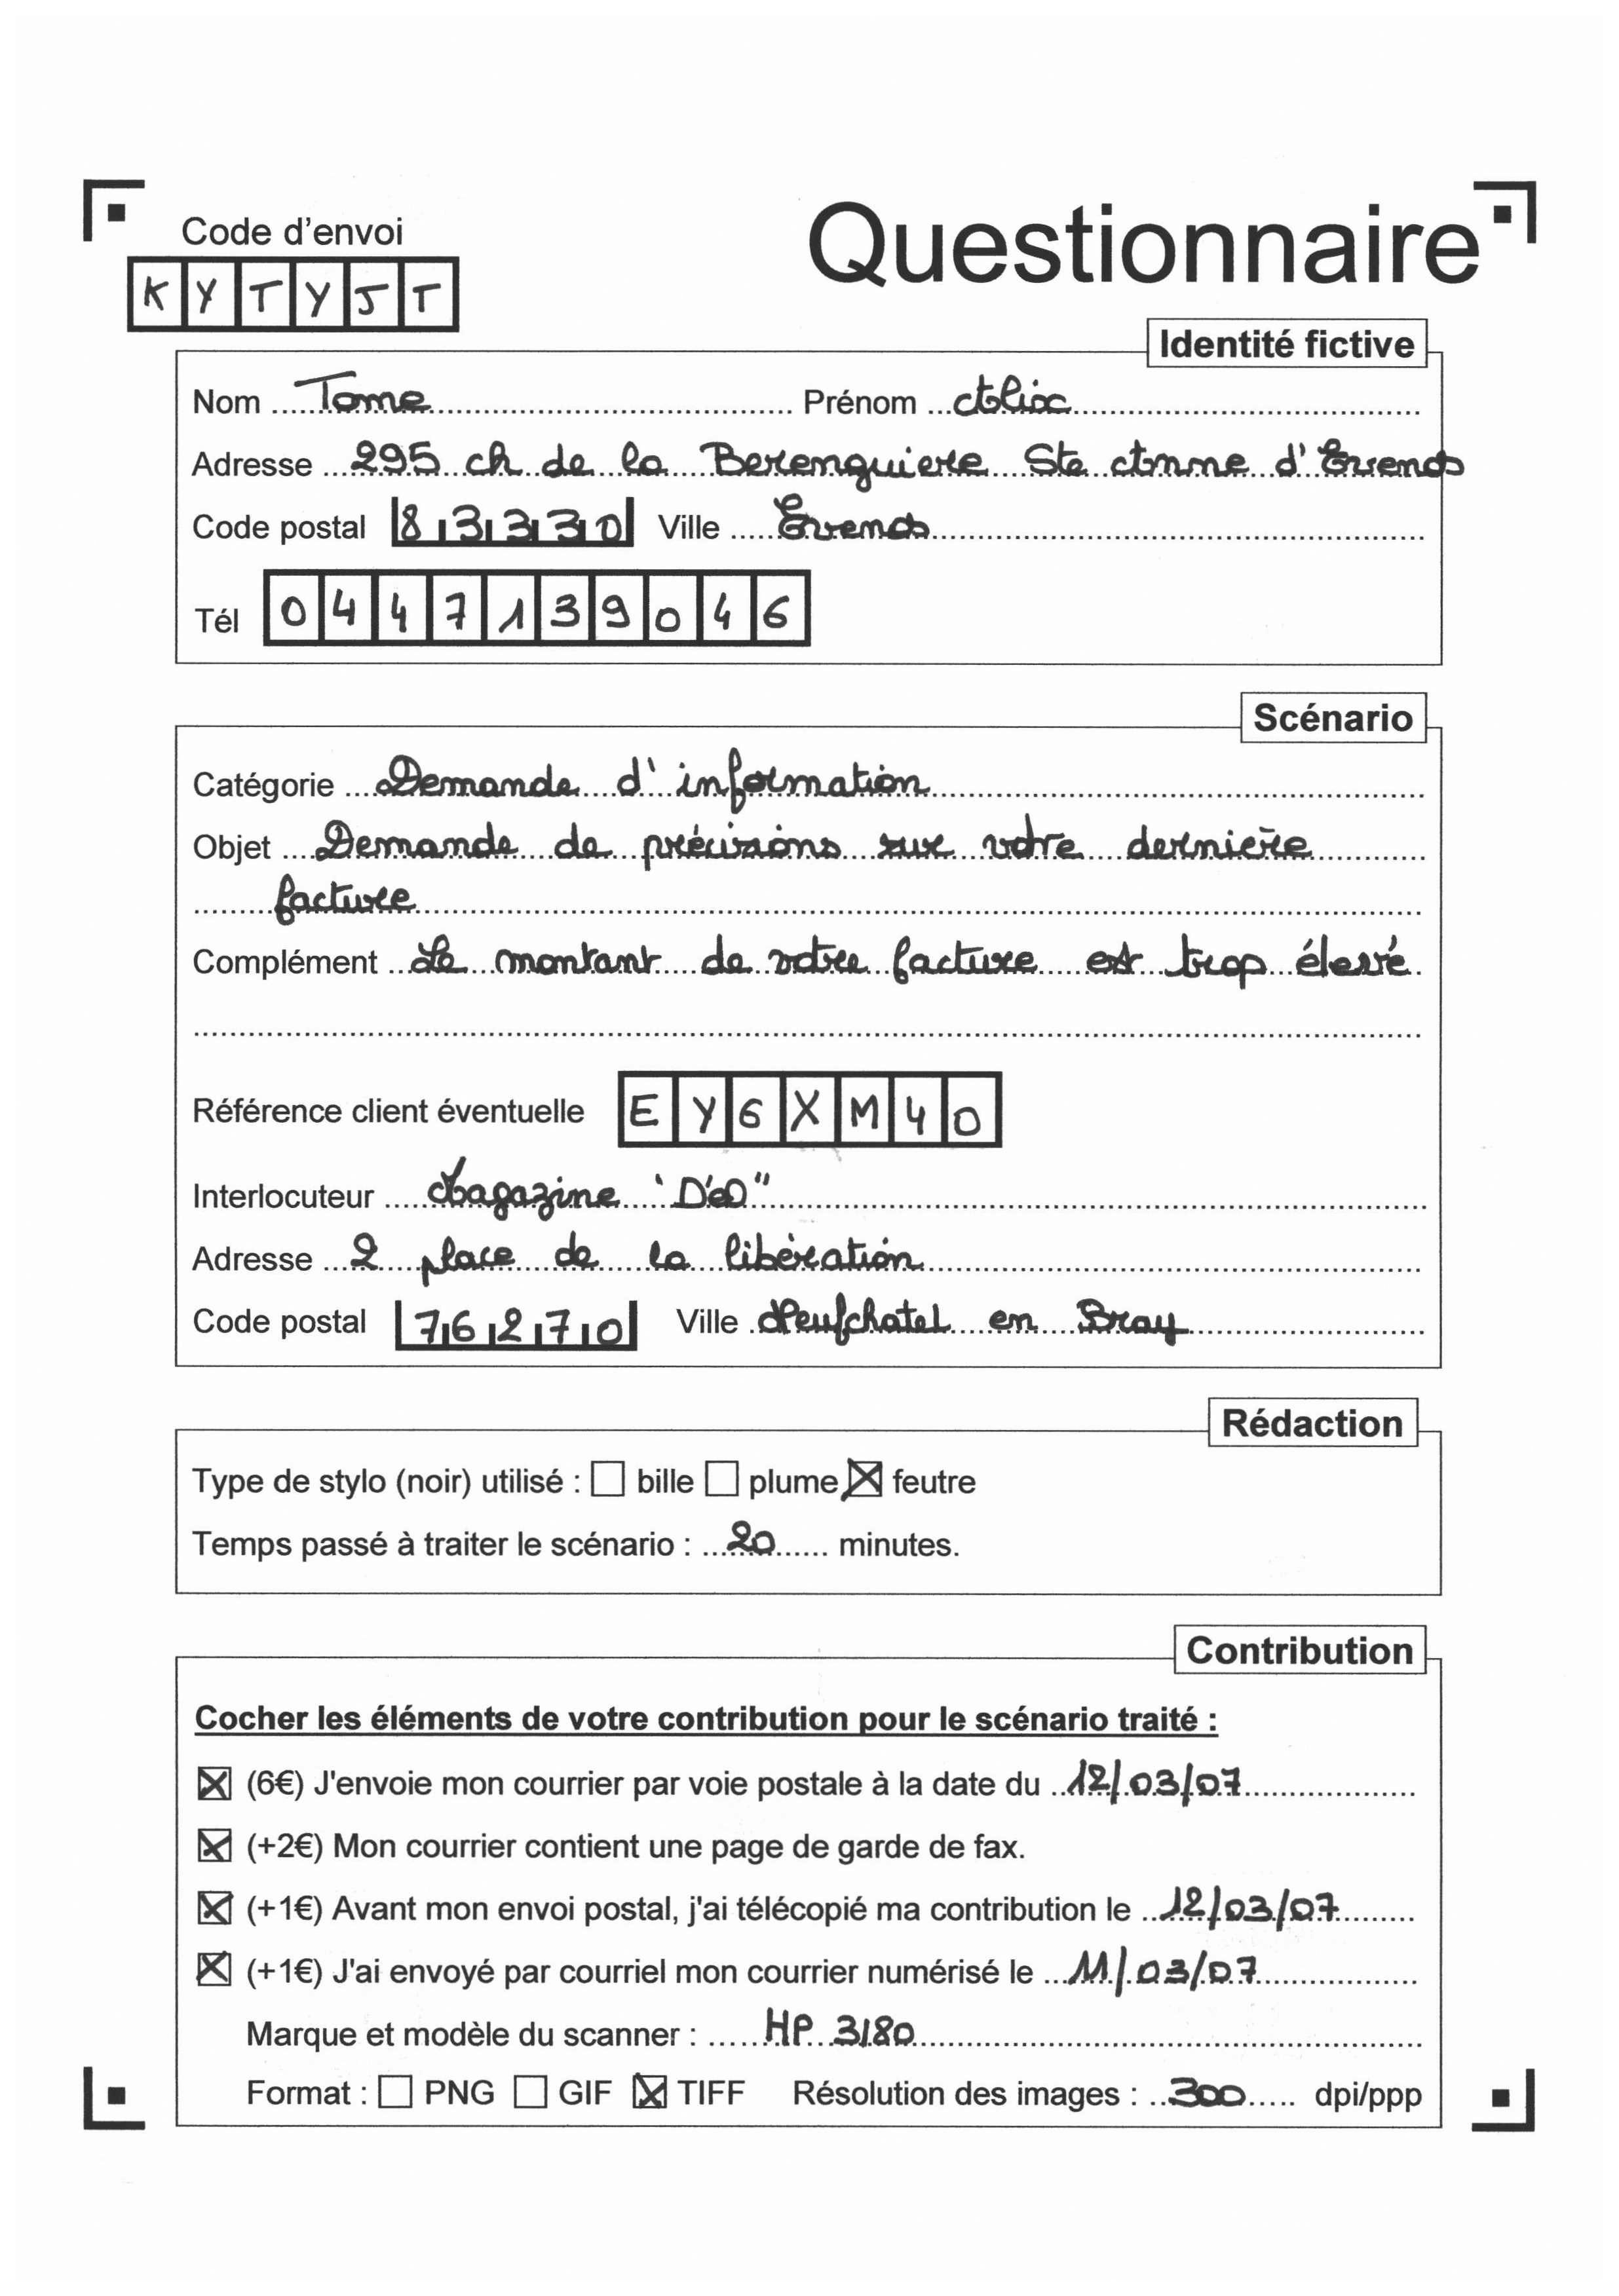 Code d'envoi
KYTYJT
Questionnaire
Identité fictive
Nom Tome Prénom Alix
Adresse 295 ch de la Berenguiere Ste Anne d'Evenos
Code postal 83330 Ville Evenos
Tél 0447139046
Scénario
Catégorie Demande d'information
Objet Demande de précisions sur votre dernière
facture
Complément Le montant de votre facture est trop élevé
Référence client éventuelle EY6XM40
Interlocuteur Magazine "D'éO"
Adresse 2 place de la libération
Code postal 76270 Ville Neufchatel en Bray
Rédaction
Type de stylo (noir) utilisé : bille plume feutre
Temps passé à traiter le scénario : 20 minutes.
Contribution
Cocher les éléments de votre contribution pour le scénario traité :
(6€) J'envoie mon courrier par voie postale à la date du 12/03/07
(+2€) Mon courrier contient une page de garde de fax.
(+1€) Avant mon envoi postal, j'ai télécopié ma contribution le 12/03/07
(+1€) J'ai envoyé par courriel mon courrier numérisé le 11/03/07
Marque et modèle du scanner : HP 3180
Format : PNG GIF TIFF Résolution des images : 300 dpi/ppp